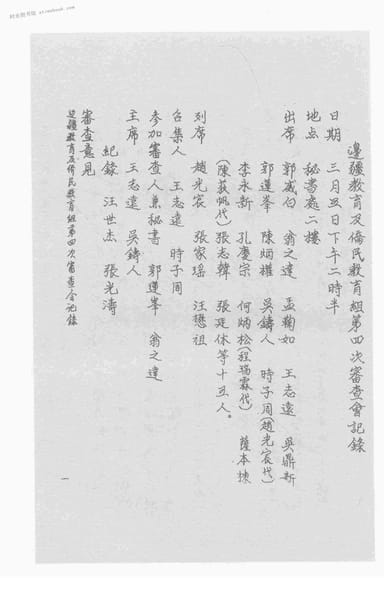 邊疆教育及僑民教育組第四次審查會記錄
日期 三月五日下午二時半
地点 秘書處二樓
出席 郭威白 翁之達 孟鞠如 王志遠 吳鼎新
郭蓮峯 陳炳權 吳鑄人 時子周(趙光宸代)
李永新 孔慶宗 何炳松(程瑞霖代) 薩本棟
(陳荻帆代)張志韓 張廷休等十五人。
列席 趙光宸 張家瑶 汪懋祖
召集人 王志遠 時子周
參加審查人兼秘書 郭蓮峯 翁之達
主席 王志遠 吳鑄人
紀錄 汪世杰 張光濤
審查意見
邊疆教育及僑民教育組第四次審查会记錄
一